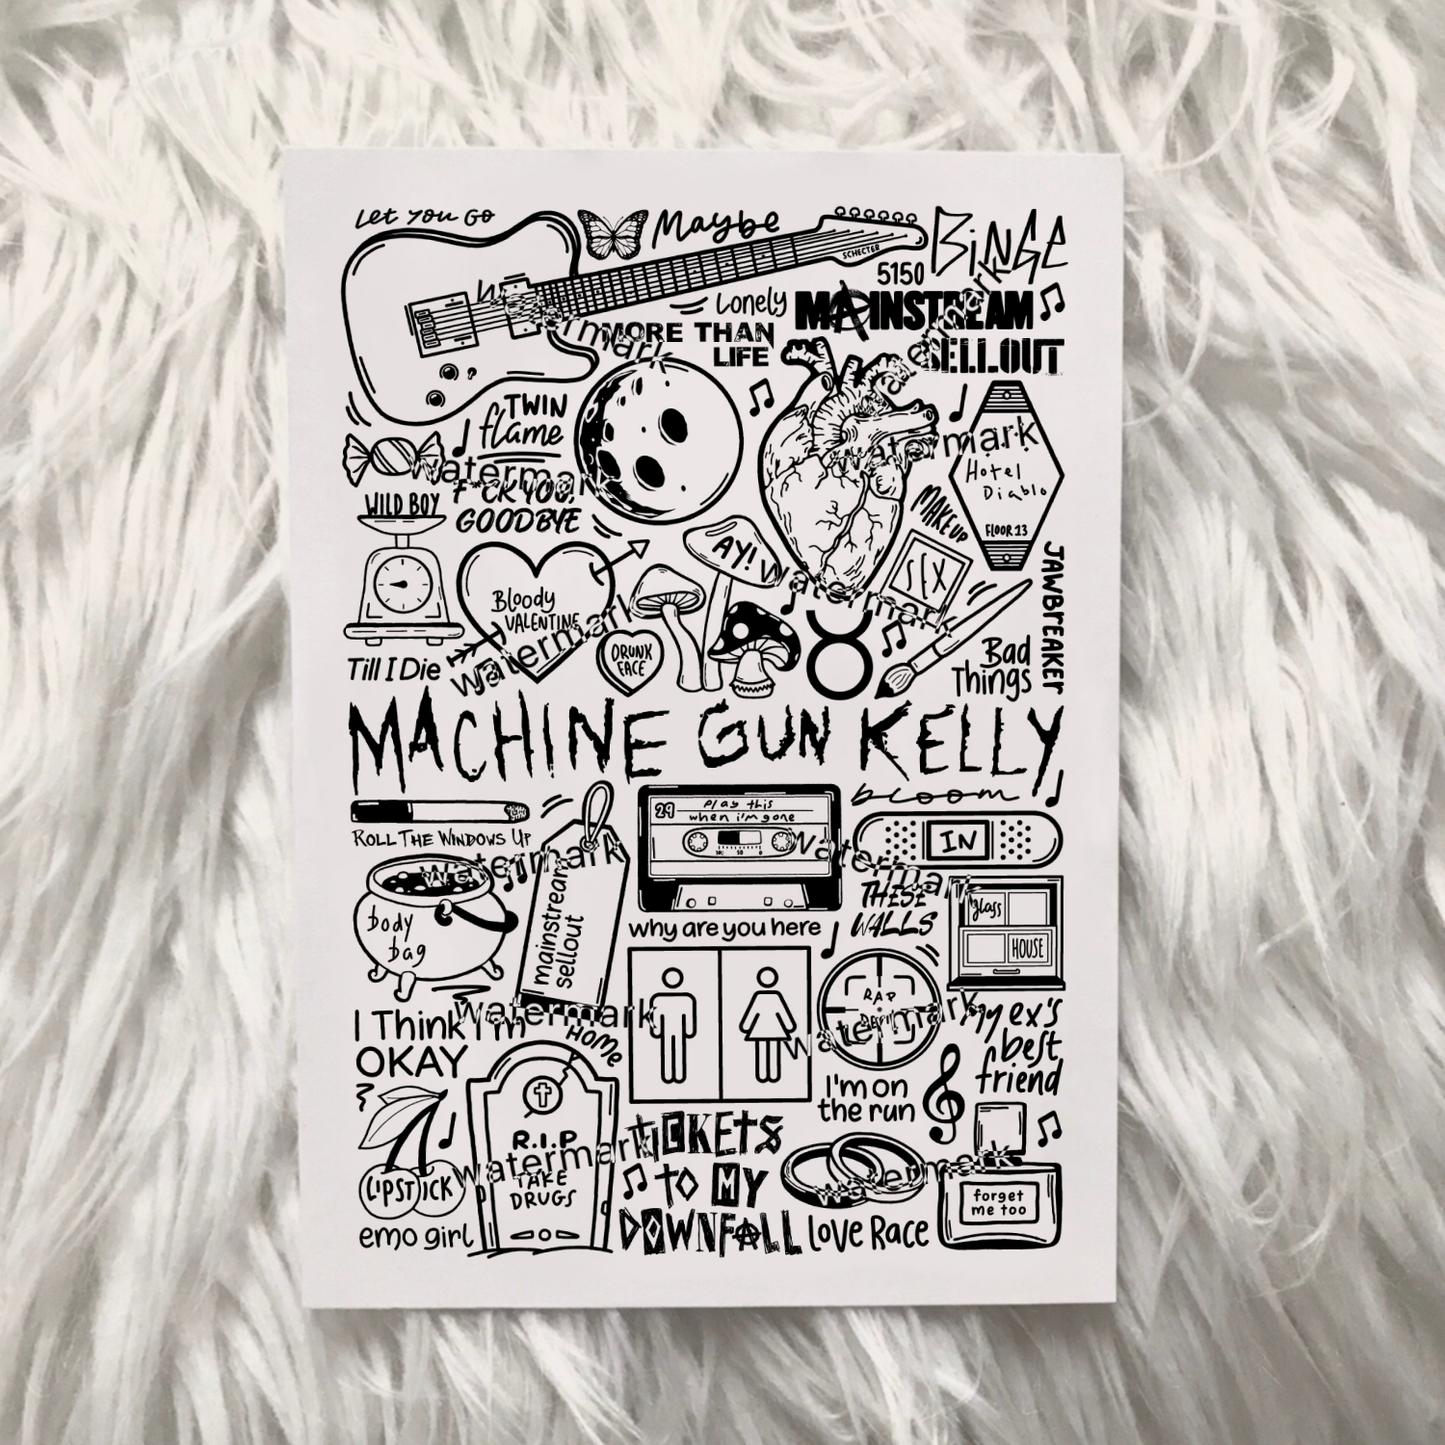 Let You Go
Maybe
BiNGE
SCHECTER
5150
Lonely
MAINSTREAM
SELLOUT
MORE THAN
LIFE
watermark
watermark
TWIN
flame
watermark
watermark
Hotel
Diablo
FLOOR 13
WILD BOY
F*CK YOU,
GOODBYE
MAKEUP
SEX
AY!
JAWBREAKER
Bloody
VALENTINE
watermark
watermark
DRUNK
FACE
Till I Die
Bad
Things
MACHINE GUN KELLY
bloom
ROLL THE WINDOWS UP
29
Play this
when i'm gone
IN
watermark
watermark
THESE
WALLS
glass
HOUSE
body
bag
mainstream
sellout
why are you here
RAP
DEVIL
watermark
watermark
I Think I'm
OKAY
Home
my ex's
best
friend
I'm on
the run
R.I.P
TAKE
DRUGS
watermark
TICKETS
TO MY
DOWNFALL
watermark
LIPSTICK
emo girl
LOVE RACE
forget
me too